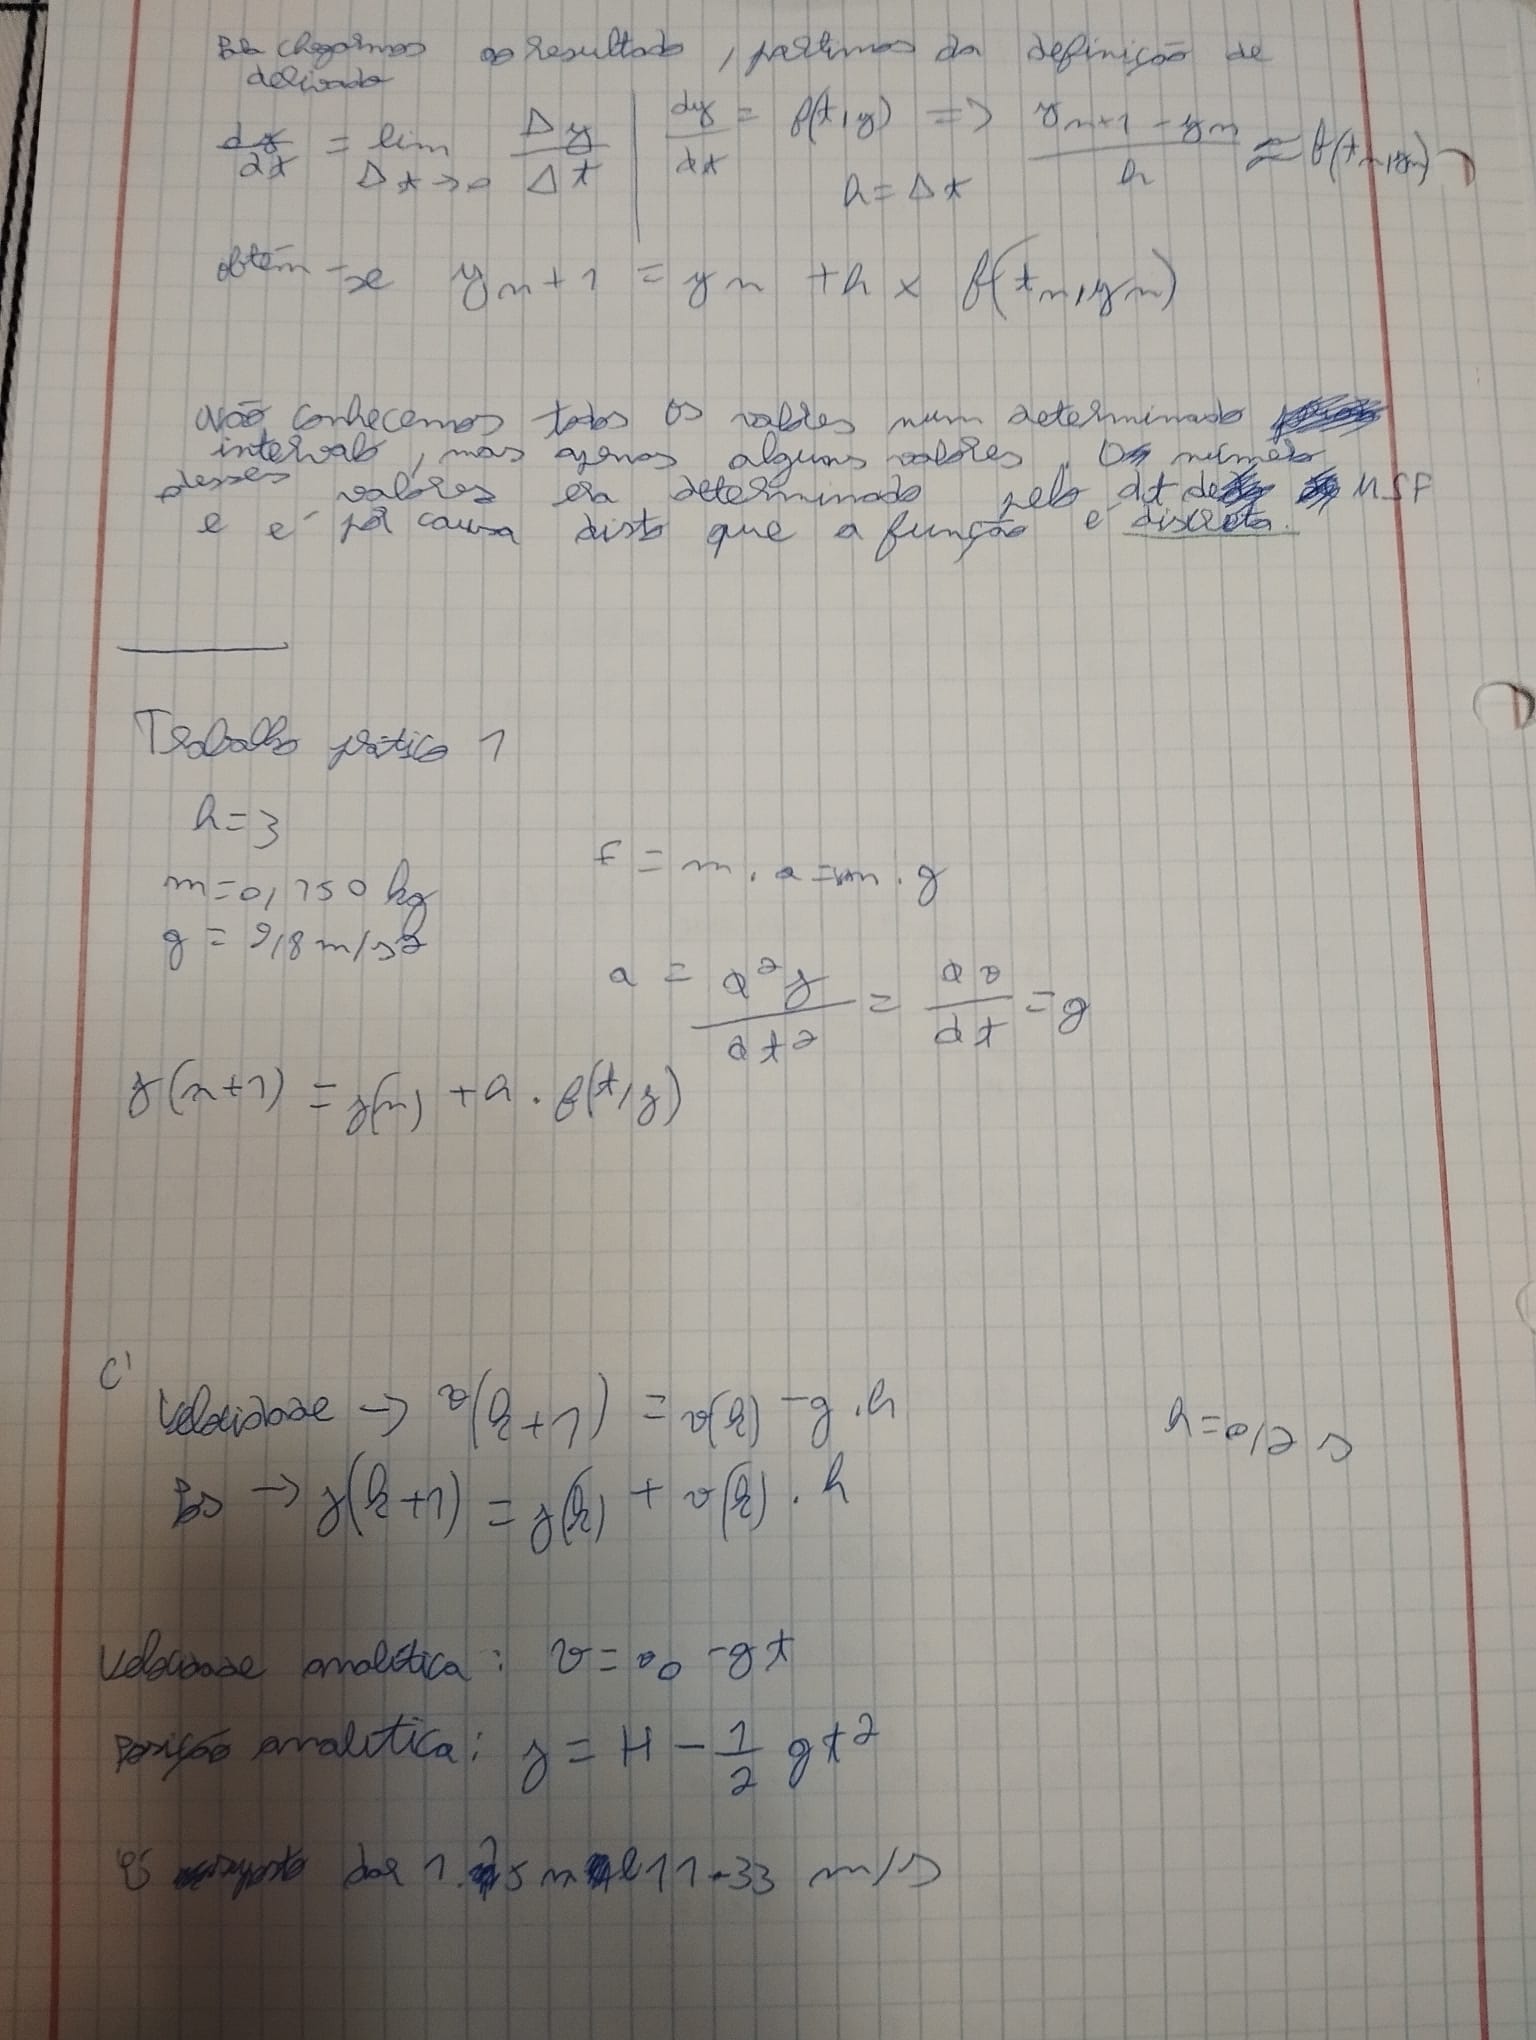 Para chegarmos ao resultado, partimos da definição de
derivada
dy/dt = lim Δt→0 Δy/Δt | dy/dt = f(t,y) => (yn+1 - yn)/h ≈ f(tn,yn)
h = Δt
obtém-se yn+1 = yn + h × f(tn,yn)
Não conhecemos todos os valores num determinado
intervalo, mas apenas alguns valores. O número
desses valores era determinado pelo dt de MSF
e é por causa disto que a função é discreta.
Trabalho prático 1
h=3
m=0,150 kg
g = 9,8 m/s2
F = m . a = m . g
a = d²y/dt² = dv/dt = g
y(n+1) = y(n) + h . f(t,y)
C)
Velocidade → v(k+1) = v(k) - g . h
h=0,2 s
Pos → y(k+1) = y(k) + v(k) . h
Velocidade analítica: v = v0 - gt
Posição analítica: y = H - 1/2 gt²
dar 11.33 m/s